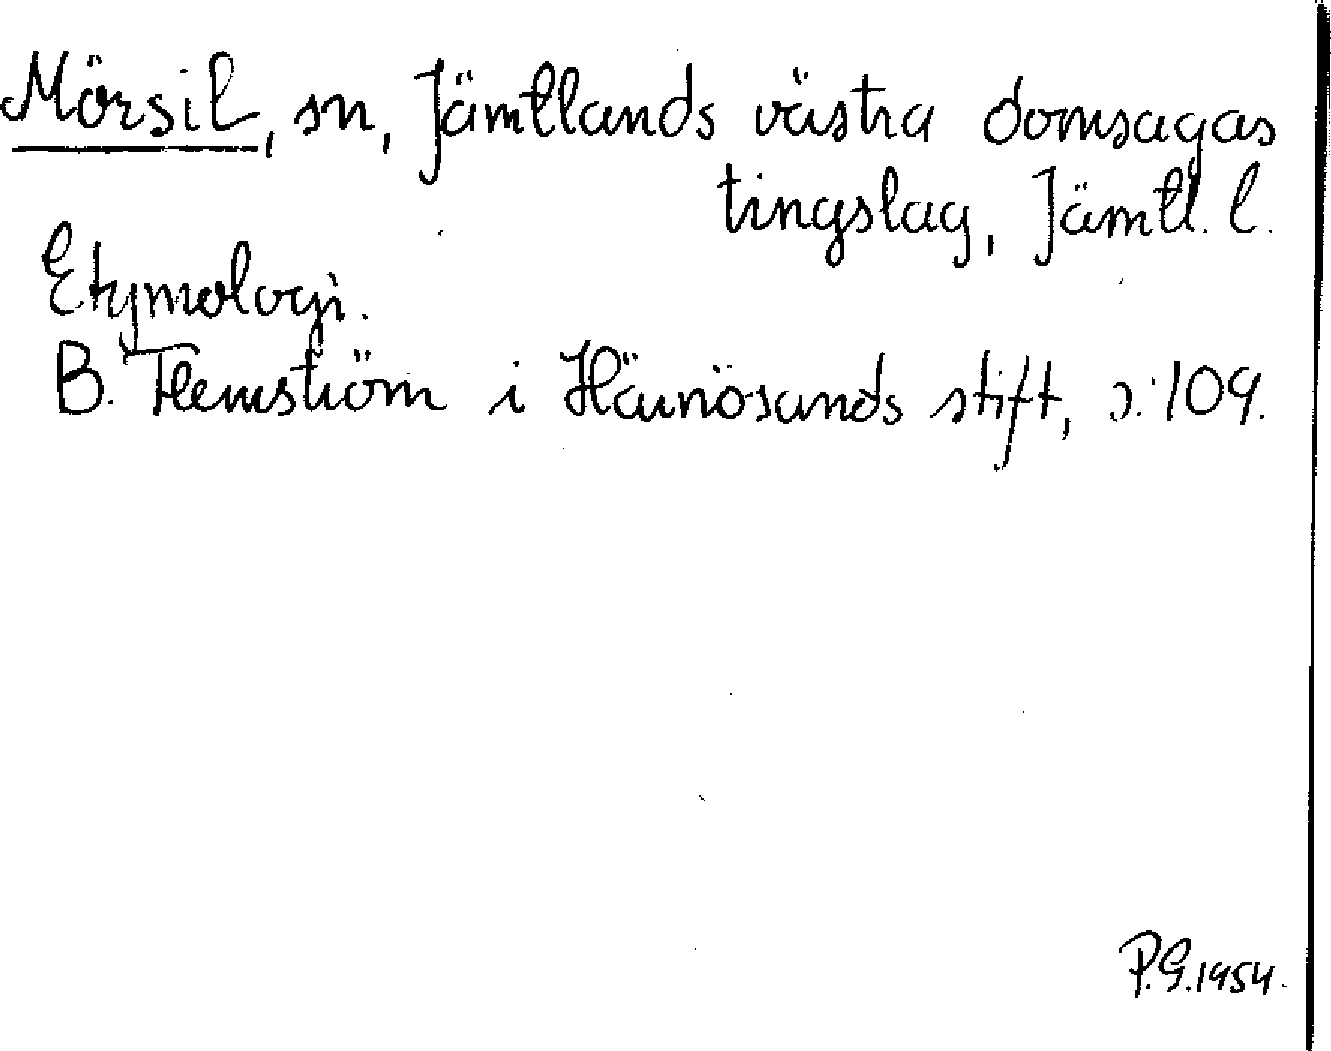 Mörsil, sn, Jämtlands västra domsagas
tingslag, Jämtl. l.
Etymologi.
B. Flemström i Härnösands stift, s. 109.
P.G. 1954.